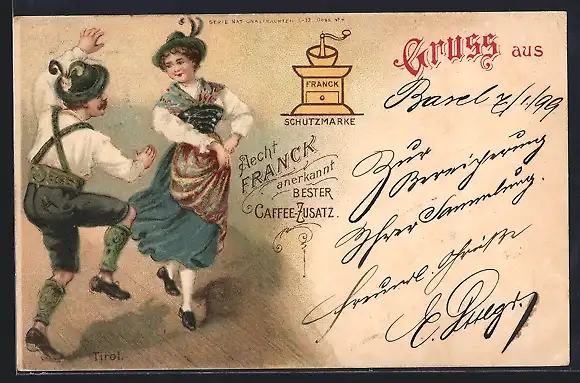 SERIE NATIONALTRACHTEN 1-12
Gruss aus
FRANCK
SCHUTZMARKE
Aecht
FRANCK
anerkannt
BESTER
CAFFEE-ZUSATZ.
Basel 7/1/99
Zur
Bereicherung
Ihrer Sammlung.
freundl. Grüsse
E.
Tirol.